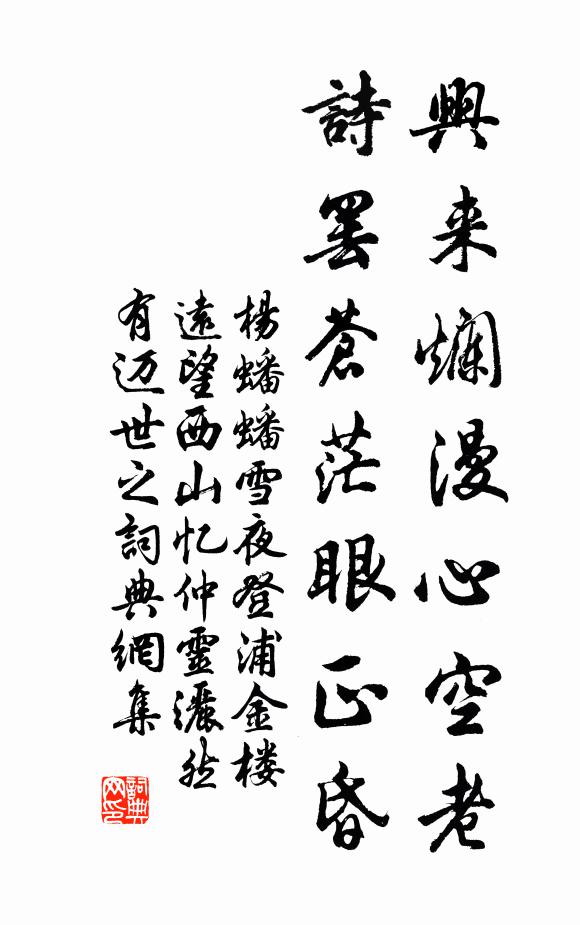 興来爛漫心空老
詩罷蒼茫眼正昏
楊蟠蟠雪夜登浦金楼
遠望西山忆仲靈灑然
有迈世之詞典網集
詞典网印